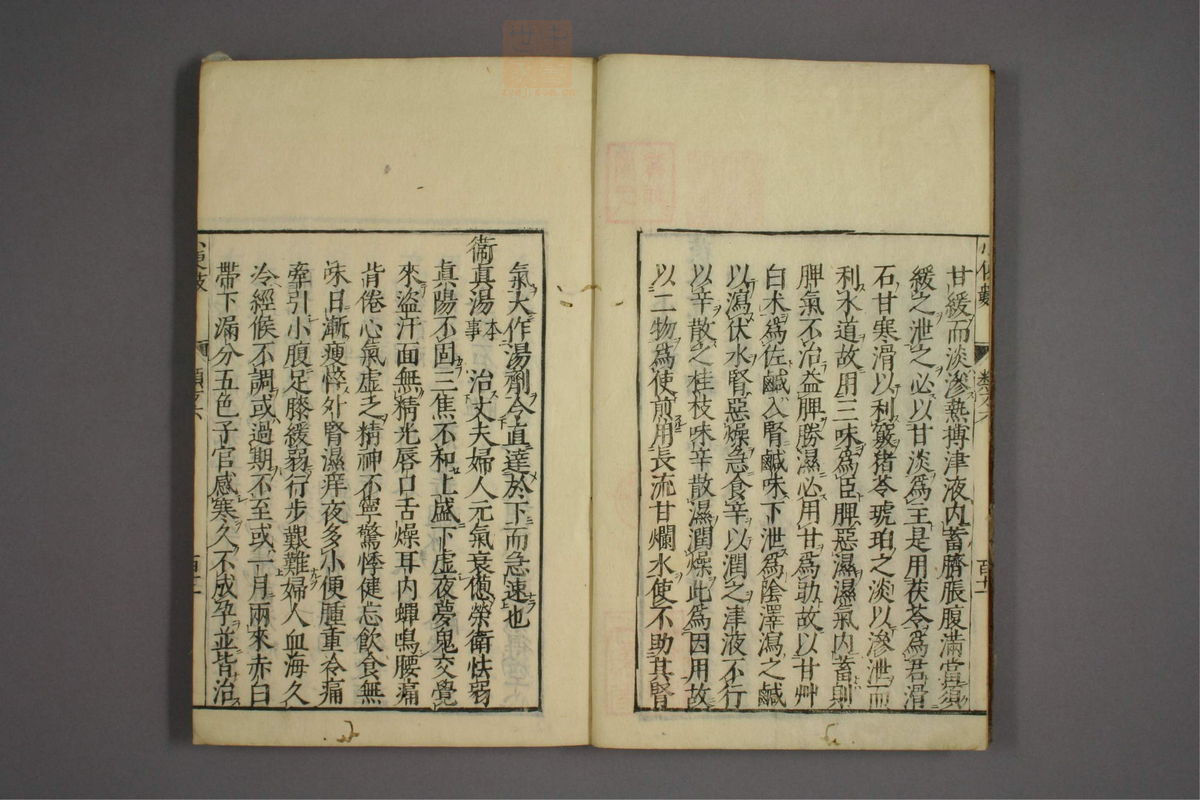 甘緩而淡滲熱搏津液内蓄臍脹腹滿當須
緩之泄之必以甘淡爲主是用茯苓爲君滑
石甘寒滑以利竅猪苓琥珀之淡以滲泄而
利水道故用三味爲臣脾惡濕濕氣内蓄則
脾氣不治益脾勝濕必用甘爲助故以甘艸
白朮爲佐鹹入腎鹹味下泄爲陰澤瀉之鹹
以瀉伏水腎惡燥急食辛以潤之津液不行
以辛散之桂枝味辛散濕潤燥此爲因用故
以二物爲使煎用長流甘爛水使不助其腎
氣大作湯劑令直達於下而急速也
衞真湯 本事 治丈夫婦人元氣衰憊榮衞怯弱
真陽不固三焦不和上盛下虚夜夢鬼交覺
來盜汗面無精光唇口舌燥耳内蟬鳴腰痛
背倦心氣虚乏精神不寧驚悸健忘飲食無
味日漸瘦悴外腎濕痒夜多小便腫重冷痛
牽引小腹足膝緩弱行步艱難婦人血海久
冷經候不調或過期不至或一月兩來赤白
帶下漏分五色子宫感寒久不成孕並皆治